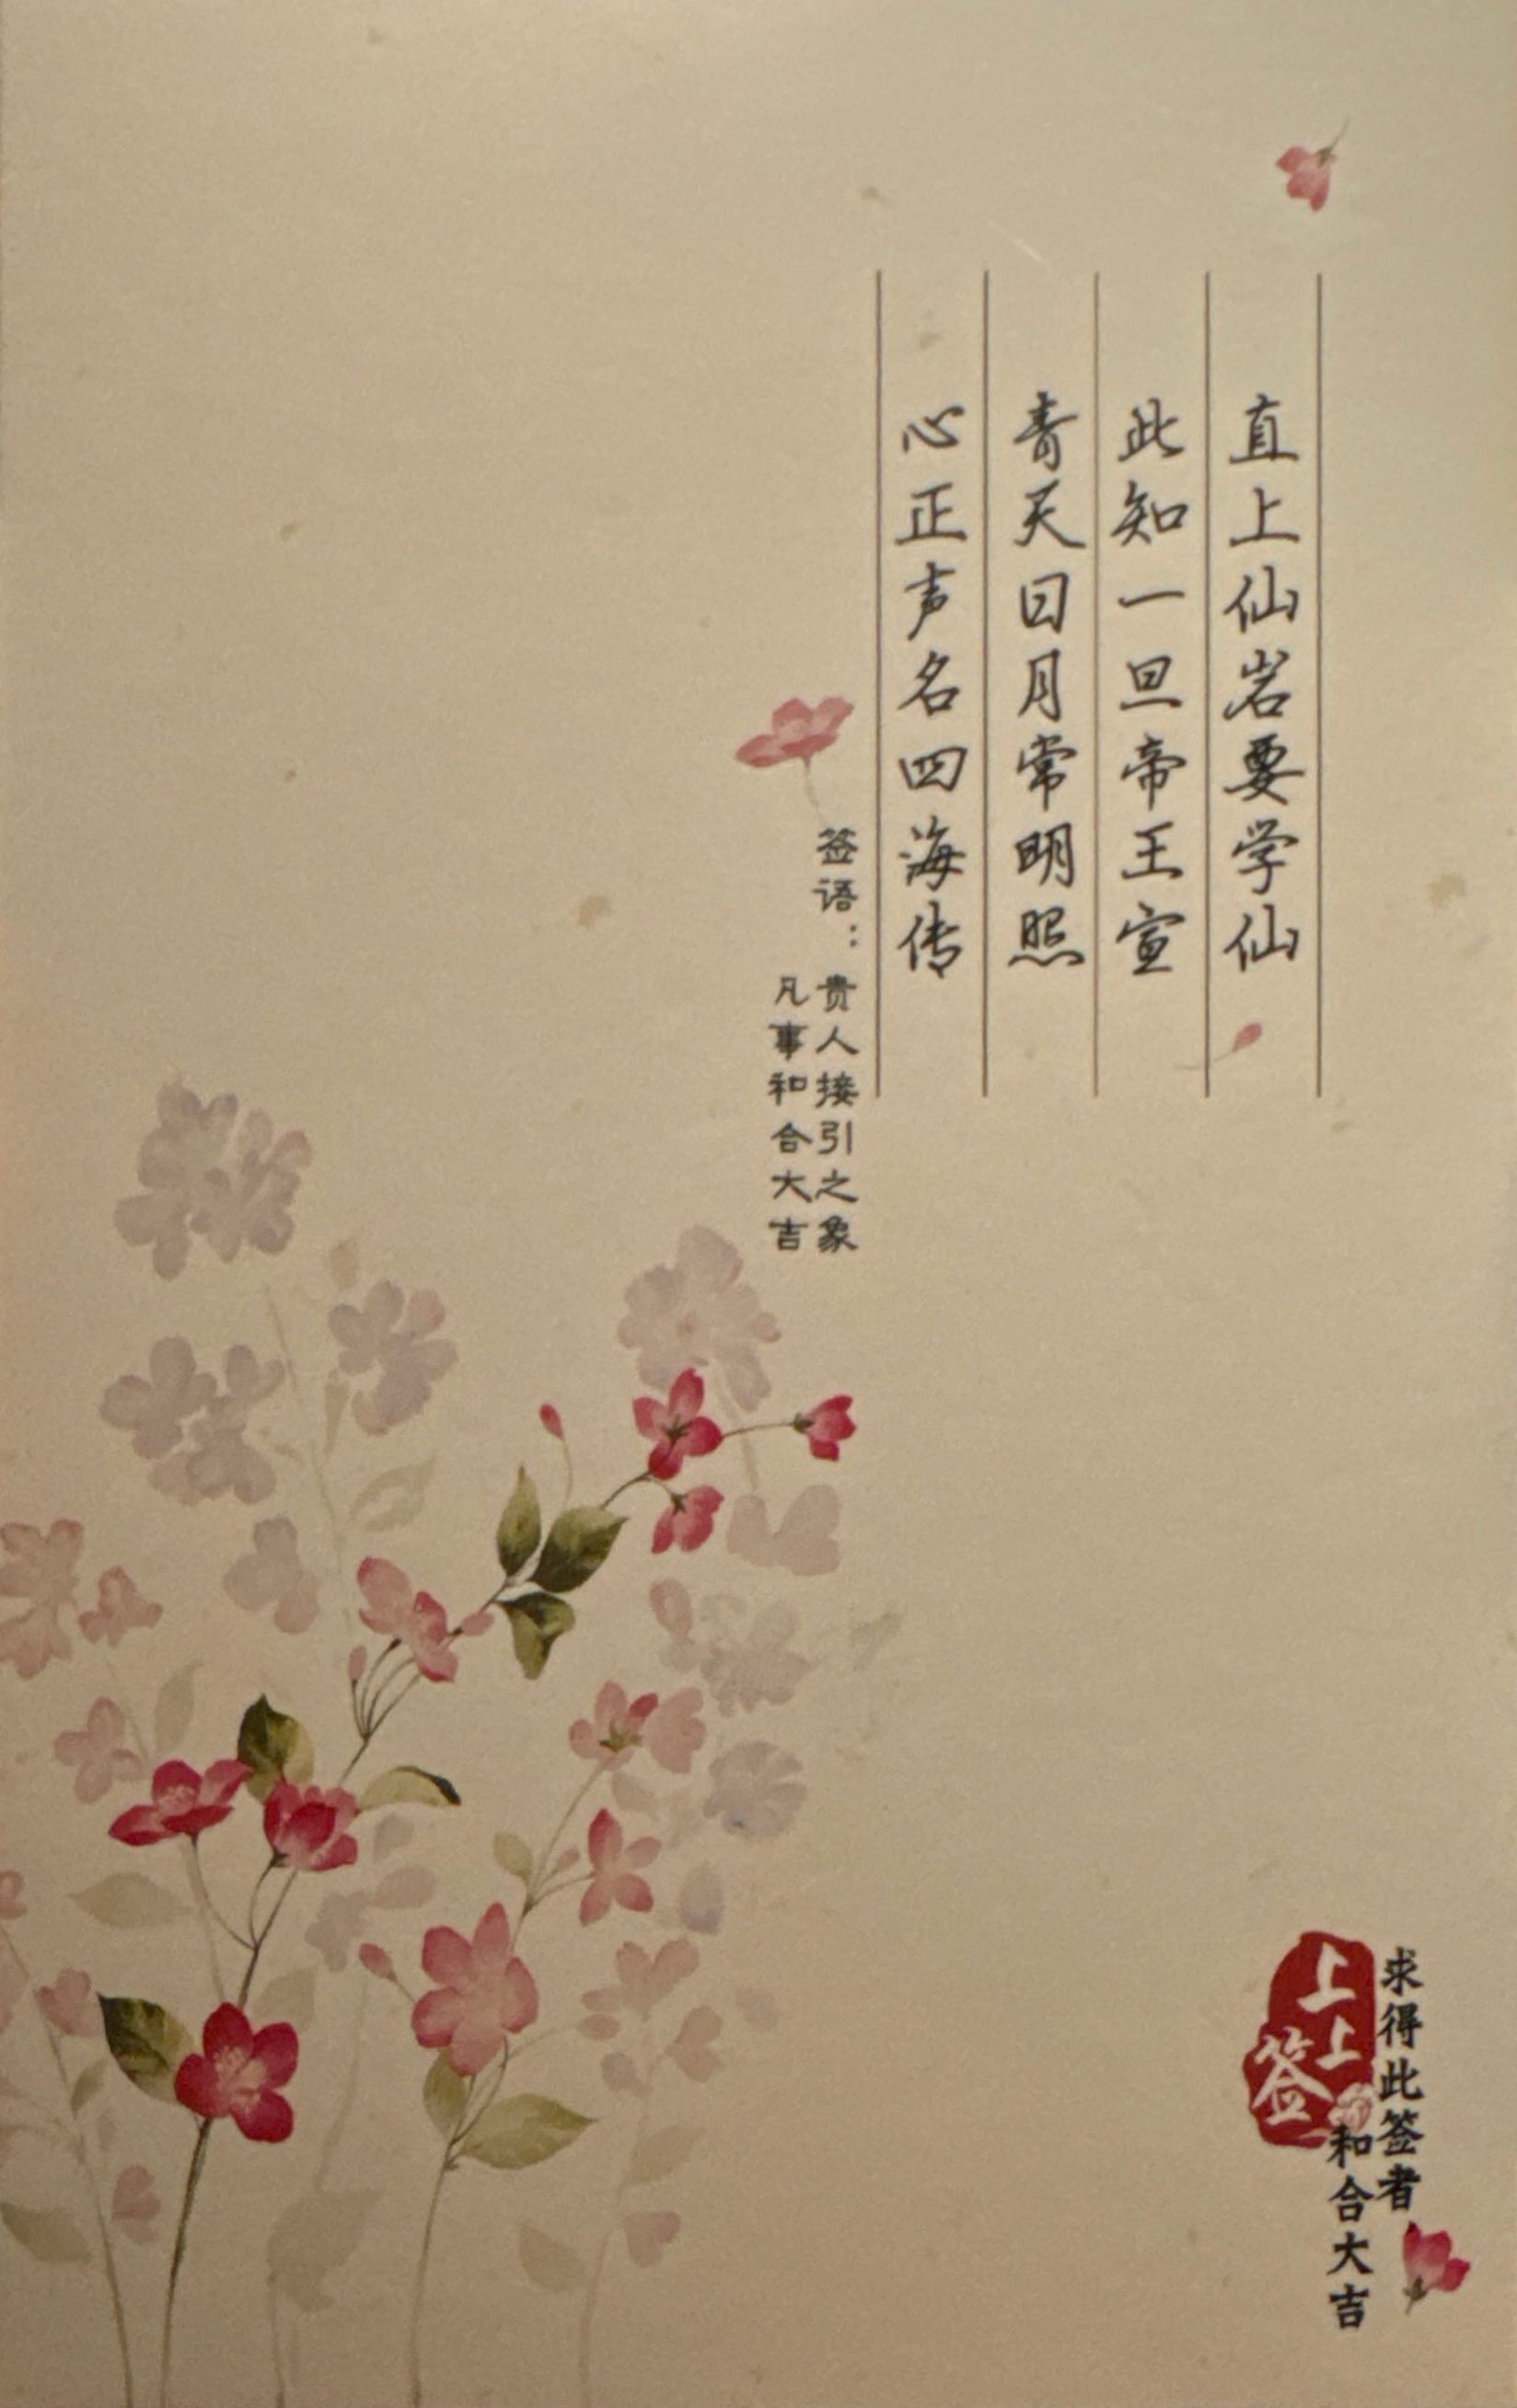 直上仙岩要学仙
此知一旦帝王宣
青天日月常明照
心正声名四海传
签语：贵人接引之象
凡事和合大吉
求得此签者
和合大吉
上上
签